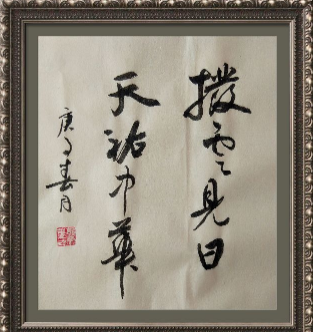 撥雲見日
天祐中華
庚子春月